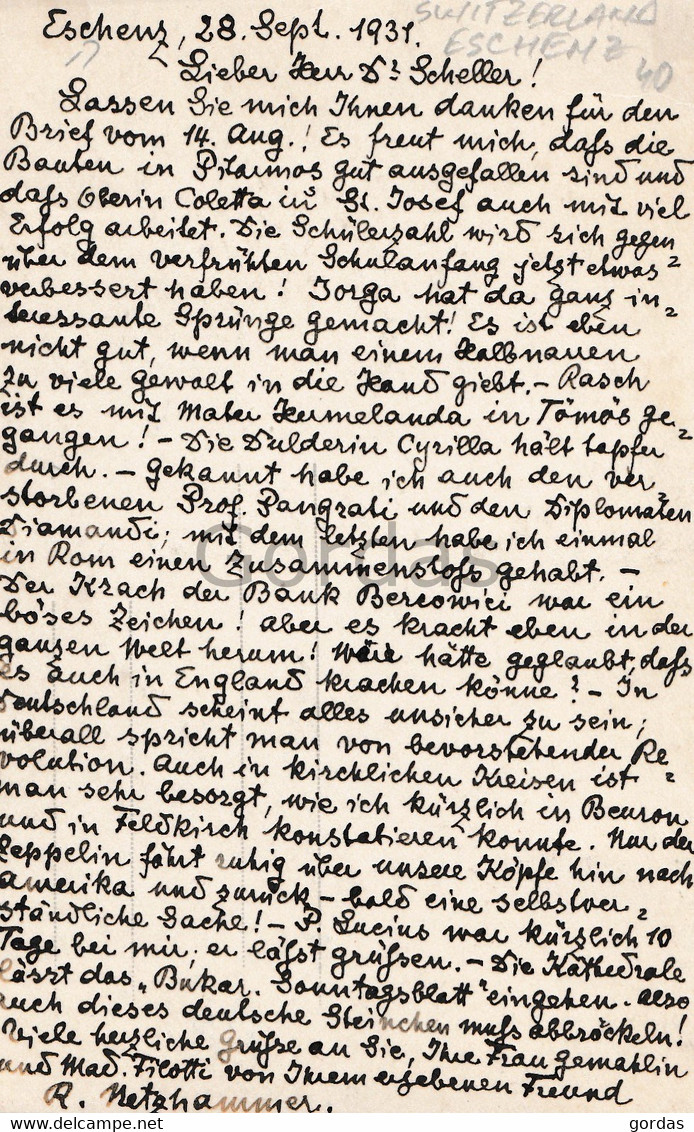 Eschenz, 28. Sept. 1931.
SWITZERLAND
ESCHENZ
40
Lieber Herr Dr Scheller!
Lassen Sie mich Ihnen danken für den
Brief vom 14. Aug.! Es freut mich, dafs die
Bauten in gut ausgefallen sind und
dafs Oberin Coletta in St. Josef auch mit viel
Erfolg arbeitet. Die Schülerzahl wird sich gegen
über dem verfrühten Schulanfang jetzt etwas
verbessert haben! Jorga hat da ganz in=
teressante Sprünge gemacht! Es ist eben
nicht gut, wenn man einem Halbnarren
zu viele gewalt in die Hand giebt. – Rasch
ist es mit Mater Hermelanda in Tömös ge=
gangen! – Die Dulderin Cyrilla hält tapfer
durch. – Gekannt habe ich auch den ver
storbenen Prof. Pangrati und den Diplomaten
Diamandi; mit dem letzten habe ich einmal
in Rom einen Zusammenstofs gehabt. –
Der Krach der Bank Bercowici war ein
böses Zeichen! aber es kracht eben in der
ganzen Welt herum! Wer hätte geglaubt, dafs
es auch in England krachen könne? – In
Deutschland scheint alles unsicher zu sein;
überall spricht man von bevorstehender Re=
volution. Auch in kirchlichen Kreisen ist
man sehr besorgt, wie ich kürzlich in Beuron
und in Feldkirch konstatieren konnte. Nur der
Zeppelin fährt ruhig über unsere Köpfe hin nach
Amerika und zurück – bald eine selbstver=
ständliche Sache! – P. Lucius war kürzlich 10
Tage bei mir; er läfst grüfsen. – Die Kathedrale
lässt das „Bukar. Sonntagsblatt" eingehen. also
auch dieses deutsche Steinchen mufs abbröckeln!
Viele herzliche Grüfse an Sie, Ihre Frau gemahlin
und Mad. Filotti von Ihrem ergebenen Freund
R. Netzhammer.
Gordas
gordas